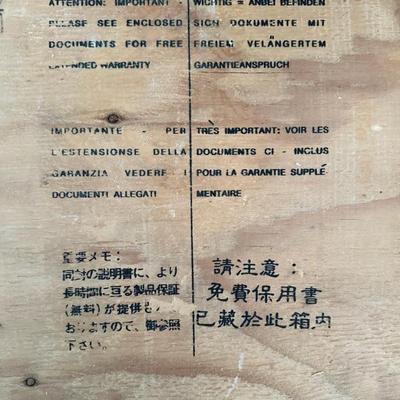 ATTENTION: IMPORTANT -
PLEASE SEE ENCLOSED
DOCUMENTS FOR FREE
EXTENDED WARRANTY
WICHTIG = ANBEI BEFINDEN
SICH DOKUMENTE MIT
FREIEM VELÄNGERTEM
GARANTIEANSPRUCH
IMPORTANTE - PER
L'ESTENSIONSE DELLA
GARANZIA VEDERE I
DOCUMENTI ALLEGATI
TRÈS IMPORTANT: VOIR LES
DOCUMENTS CI - INCLUS
POUR LA GARANTIE SUPPLÉ-
MENTAIRE
重要メモ:
同封の説明書に、より
長時間に亘る製品保証
(無料)が提供し
おりますので、御参照
下さい。
請注意:
免費保用書
已藏於此箱內